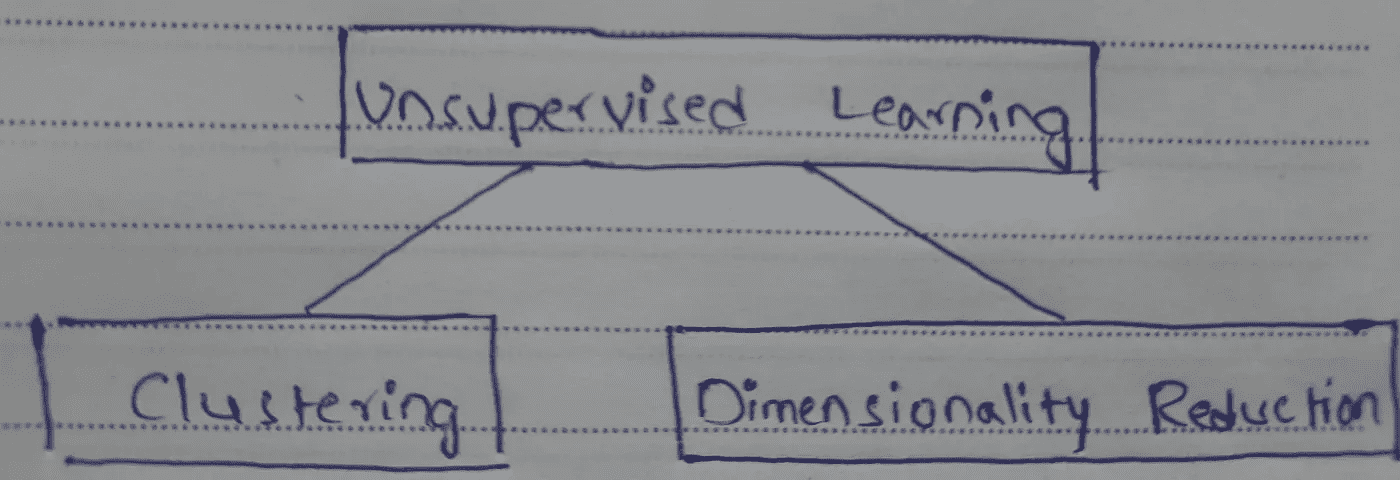 Unsupervised Learning
Clustering
Dimensionality Reduction